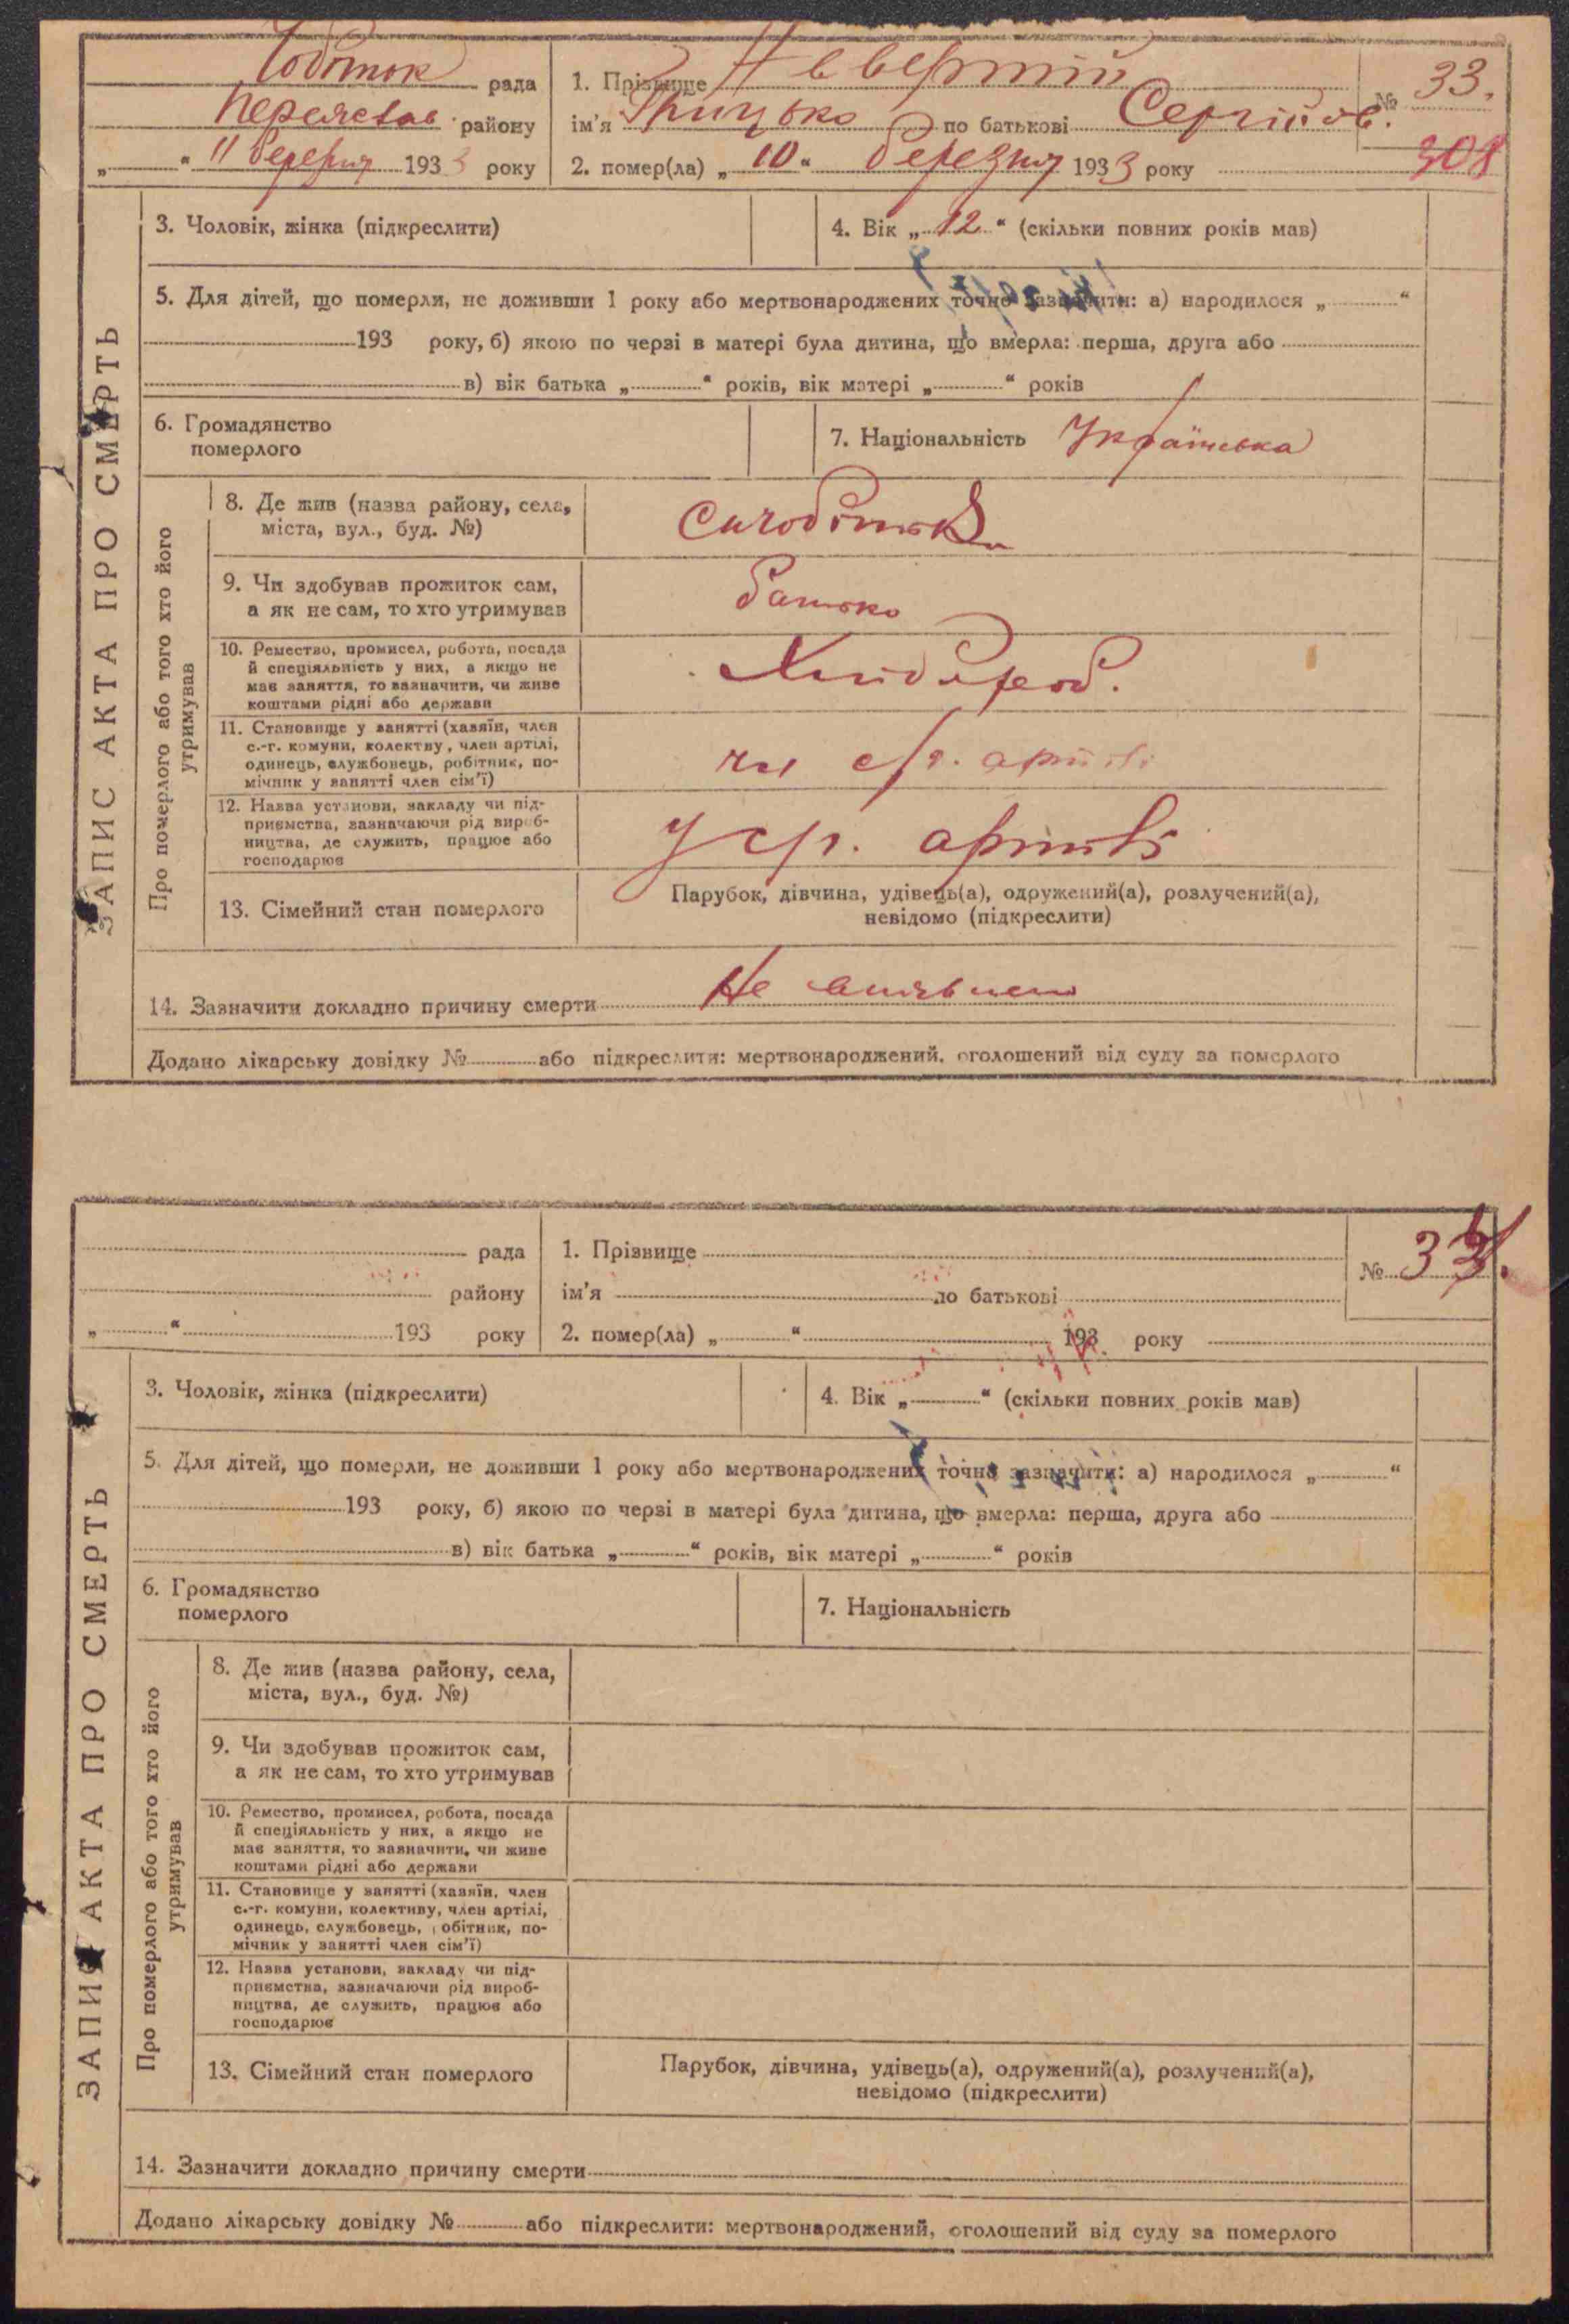 Чобіток рада
Переяслав району
„ “ 11 березня 1933 року
1. Прізвище Авверкій
№ 33.
ім’я Грицько по батькові Сергійов.
2. помер(ла) „ 10 “ березня 1933 року
308
ЗАПИС АКТА ПРО СМЕРТЬ
3. Чоловік, жінка (підкреслити)
4. Вік „ 12 “ (скільки повних років мав)
5. Для дітей, що померли, не доживши 1 року або мертвонароджених точно зазначити: а) народилося „ “
193 року, б) якою по черзі в матері була дитина, що вмерла: перша, друга або
в) вік батька „ “ років, вік матері „ “ років
6. Громадянство
померлого
7. Національність Українська
Про померлого або того хто його
утримував
8. Де жив (назва району, села,
міста, вул., буд. №)
9. Чи здобував прожиток сам,
а як не сам, то хто утримував
батько
10. Ремество, промисел, робота, посада
й спеціяльність у них, а якщо не
має заняття, то зазначити, чи живе
коштами рідні або держави
Хлібороб.
11. Становище у занятті (хазяїн, член
с.-г. комуни, колективу, член артілі,
одинець, службовець, робітник, по-
мічник у занятті член сім’ї)
чл с/г. артілі
12. Назва установи, закладу чи під-
приємства, зазначаючи рід вироб-
ництва, де служить, працює або
господарює
У с/г. артілі
13. Сімейний стан померлого
Парубок, дівчина, удівець(а), одружений(а), розлучений(а),
невідомо (підкреслити)
14. Зазначити докладно причину смерти Не виявлено
Додано лікарську довідку № або підкреслити: мертвонароджений, оголошений від суду за померлого
рада
району
„ “ 193 року
1. Прізвище
№ 34.
ім’я по батькові
2. помер(ла) „ “ 193 року
ЗАПИС АКТА ПРО СМЕРТЬ
3. Чоловік, жінка (підкреслити)
4. Вік „ “ (скільки повних років мав)
5. Для дітей, що померли, не доживши 1 року або мертвонароджених точно зазначити: а) народилося „ “
193 року, б) якою по черзі в матері була дитина, що вмерла: перша, друга або
в) вік батька „ “ років, вік матері „ “ років
6. Громадянство
померлого
7. Національність
Про померлого або того хто його
утримував
8. Де жив (назва району, села,
міста, вул., буд. №)
9. Чи здобував прожиток сам,
а як не сам, то хто утримував
10. Ремество, промисел, робота, посада
й спеціяльність у них, а якщо не
має заняття, то зазначити, чи живе
коштами рідні або держави
11. Становище у занятті (хазяїн, член
с.-г. комуни, колективу, член артілі,
одинець, службовець, робітник, по-
мічник у занятті член сім’ї)
12. Назва установи, закладу чи під-
приємства, зазначаючи рід вироб-
ництва, де служить, працює або
господарює
13. Сімейний стан померлого
Парубок, дівчина, удівець(а), одружений(а), розлучений(а),
невідомо (підкреслити)
14. Зазначити докладно причину смерти
Додано лікарську довідку № або підкреслити: мертвонароджений, оголошений від суду за померлого